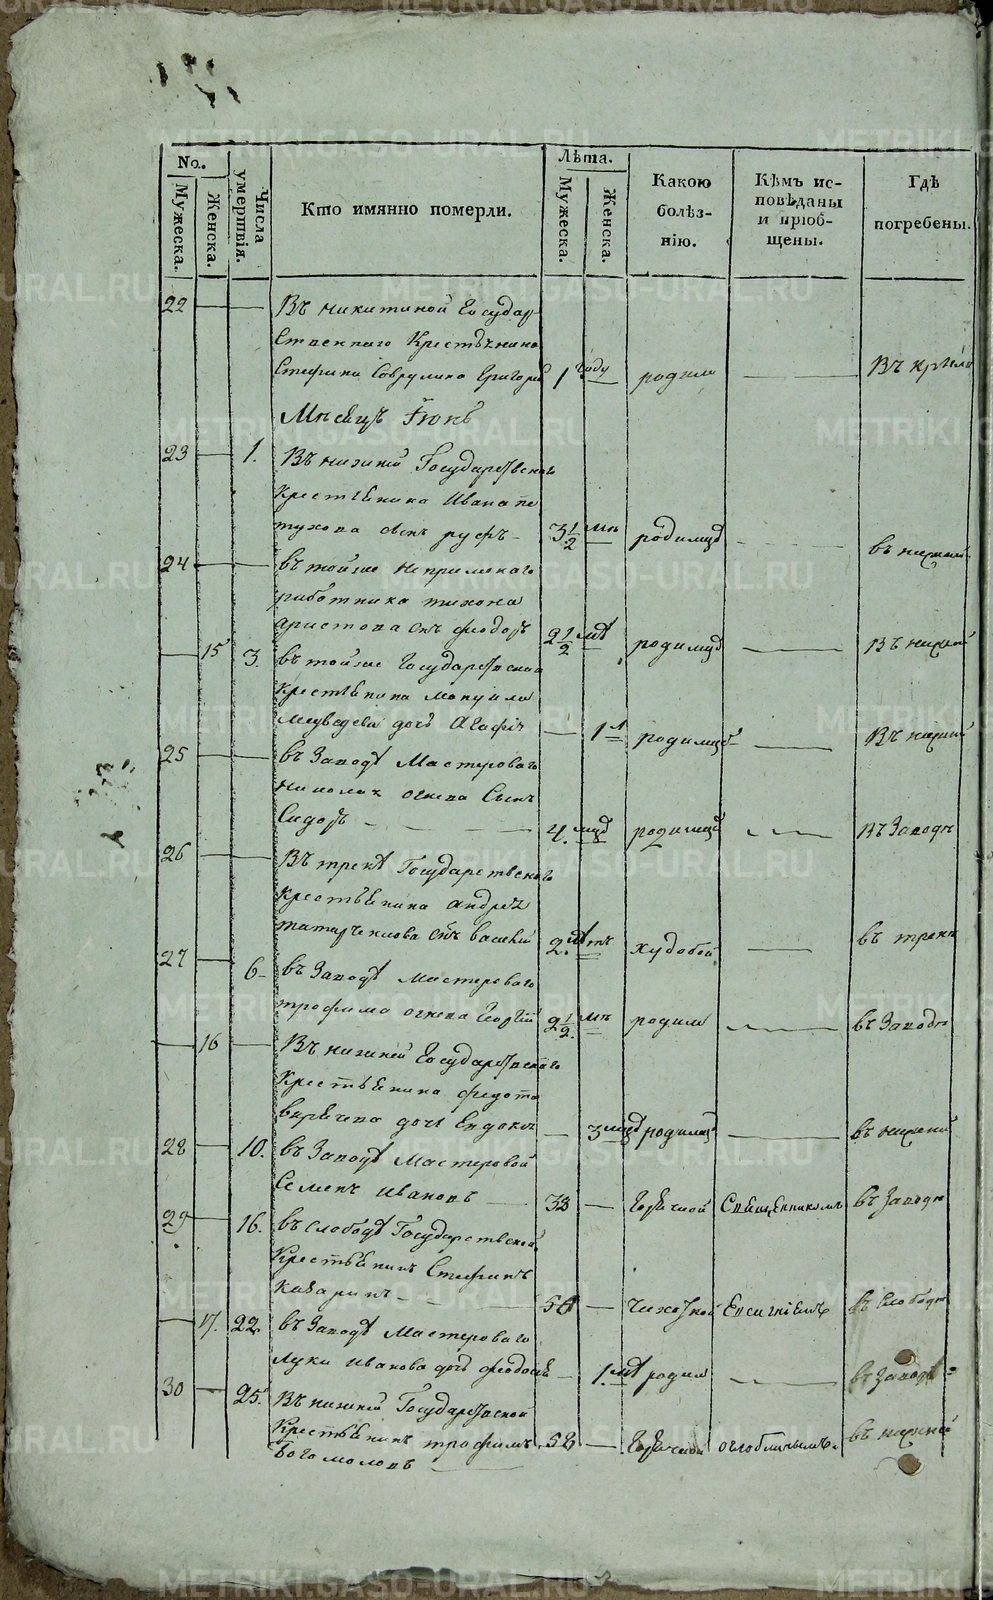 No.
Мужеска.
Женска.
Числа умертвія.
Кто имянно померли.
Лѣта.
Мужеска.
Женска.
Какою болѣзнію.
Кѣмъ исповѣданы и пріобщены.
Гдѣ погребены.
22
Въ Никитиной Государ
ственнаго Крестьянина
Стефана Григорій 1 году родим
Мѣсецъ Іюнь
23 1. Въ нижней Государственнаго
крестьянина Ивана пе
тухова сынъ руфъ 3 1/2 мѣ родимцѣ въ нижней
24 въ тойже Непремѣнаго
работника тихона
аристова снъ феодоръ 2 1/2 родимцѣ Въ нижней
15 3. въ тойже Государственнаго
крестьянина Мануила
Медведева дочь Агафія 1 родимцѣ Въ нижней
25 въ Заводѣ Мастероваго
Николая огнева Сынъ
Сидоръ 4. родимцѣ Въ Заводѣ
26 Въ трекѣ Государственнаго
крестьянина андрея
снъ василій 2 худобой въ трекѣ
27 6 въ Заводѣ Мастероваго
трофима огнева Георгій 2 1/2 мѣ родим въ Заводѣ
16 Въ нижней Государственнаго
Крестьянина федота
дочь Евдокія 3 родимцѣ въ нижней
28 10. въ Заводѣ Мастеровой
Семенъ Ивановъ 38 Горячкой Священникомъ въ Заводѣ
29 16. въ слободѣ Государственной
Крестьянинъ Стефанъ
чихоткой въ слободѣ
17. 22 въ Заводѣ Мастероваго
Луки Иванова дочь феодосія 1. родим въ Заводѣ
30 25. Въ нижней Государственной
Крестьянинъ трофимъ 58 Горячкой въ нижней
Богомоловъ
METRIKI.GASO-URAL.RU